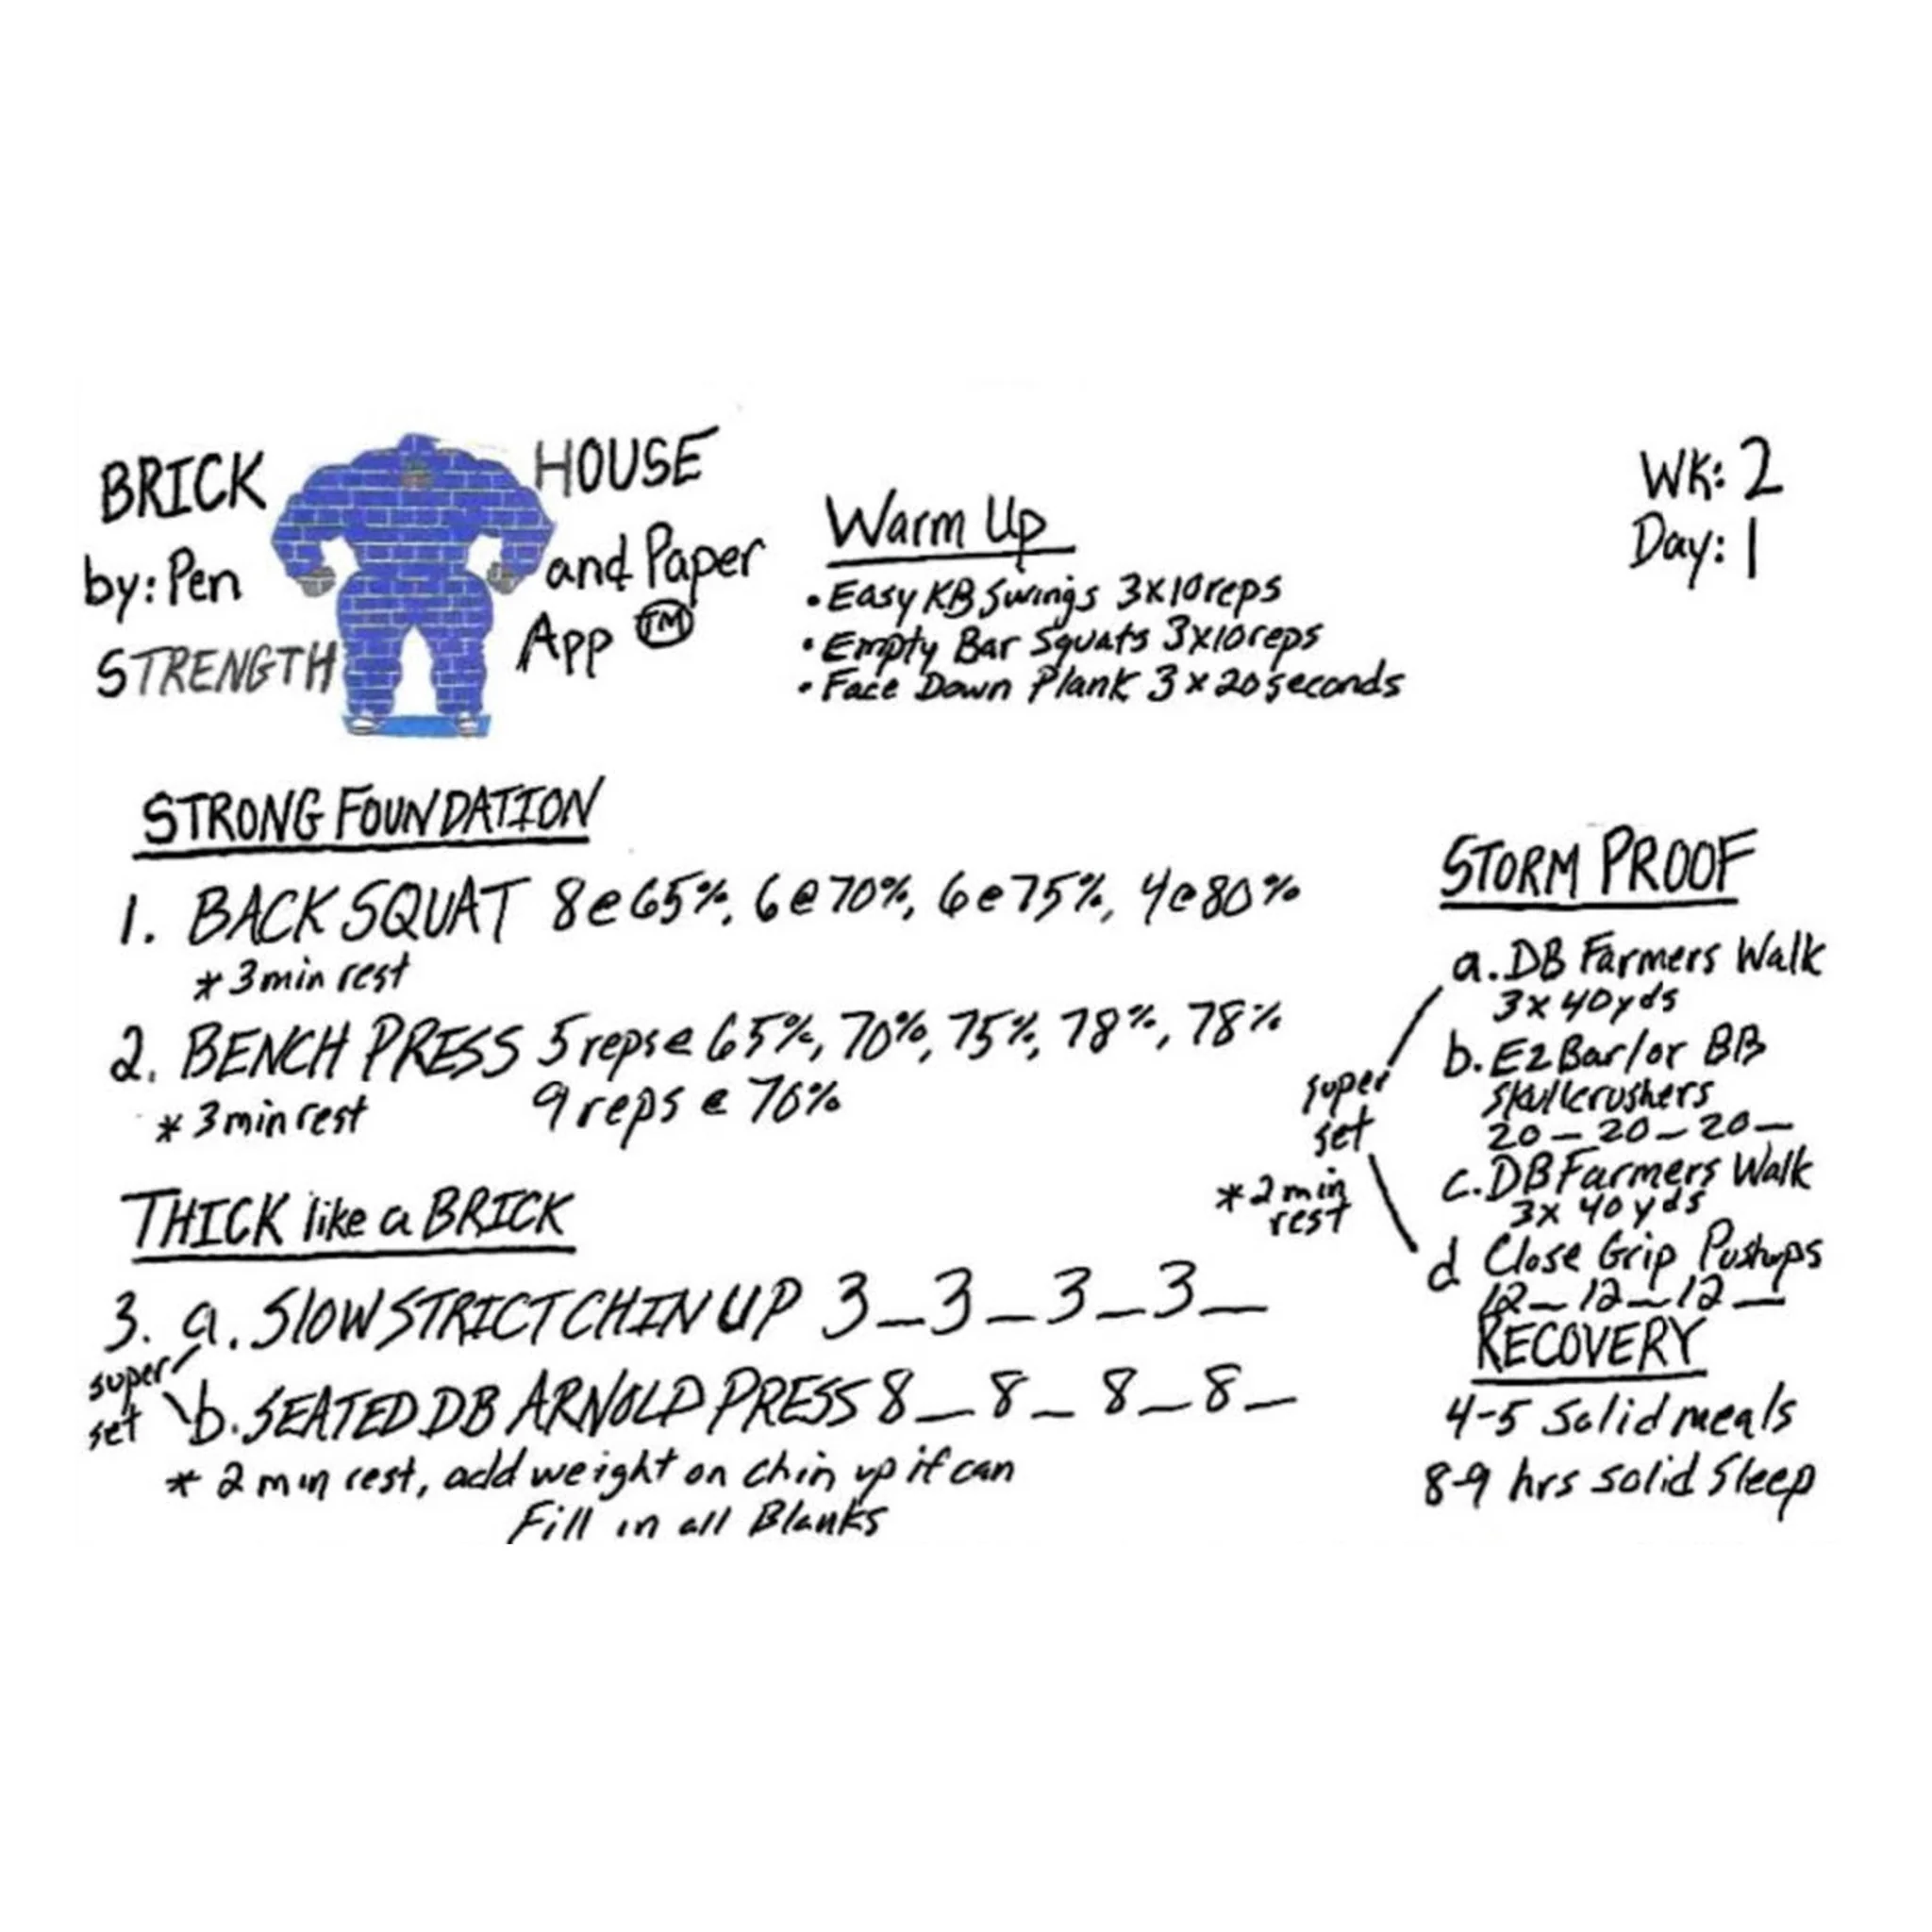 BRICK HOUSE
by: Pen and Paper
STRENGTH App TM
Warm Up
• Easy KB Swings 3x10reps
• Empty Bar Squats 3x10reps
• Face Down Plank 3 x 20 seconds
Wk: 2
Day: 1
STRONG FOUNDATION
1. BACK SQUAT 8@65%, 6@70%, 6@75%, 4@80%
* 3min rest
2. BENCH PRESS 5reps@ 65%, 70%, 75%, 78%, 78%
* 3min rest 9 reps @ 76%
THICK like a BRICK
3. a. SLOW STRICT CHIN UP 3_3_3_3_
super set
b. SEATED DB ARNOLD PRESS 8_8_8_8_
* 2 min rest, add weight on chin up if can
Fill in all Blanks
STORM PROOF
a. DB Farmers Walk
3x40yds
b. EZ Bar/or BB
Skullcrushers
20_20_20_
c. DB Farmers Walk
3x 40yds
d Close Grip Pushups
12_12_12_
super
set
*2min
rest
RECOVERY
4-5 Solid meals
8-9 hrs solid Sleep